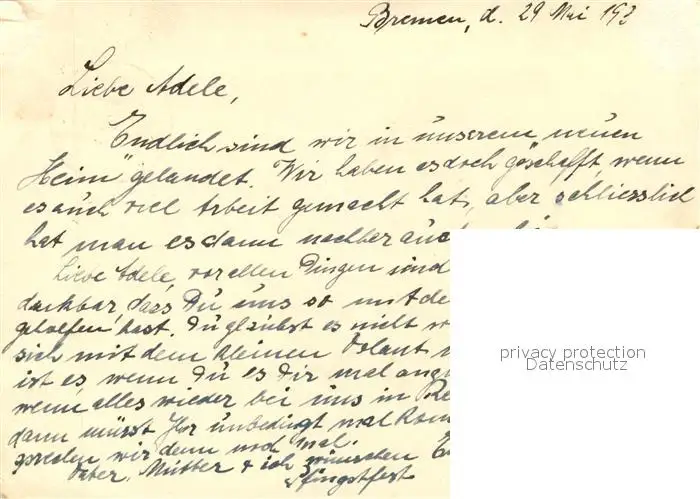 Bremen, d. 29 Mai 193
Liebe Adele,
Endlich sind wir in unserem neuen
Heim" gelandet. Wir haben es doch geschafft, wenn
es auch viel Arbeit gemacht hat, aber schliesslich
hat man es dann nachher auch
Liebe Adele, vor allen Dingen sind
dankbar, dass Du uns so mit de
geholfen hast. Du glaubst es nicht w
sich mit dem kleinen
ist es, wenn Du es Dir mal
wenn alles wieder bei uns in Re
dann müsst Ihr unbedingt mal kom
sprechen wir denn noch mal.
Vater, Mutter & ich wünschen
Pfingstfest
privacy protection
Datenschutz